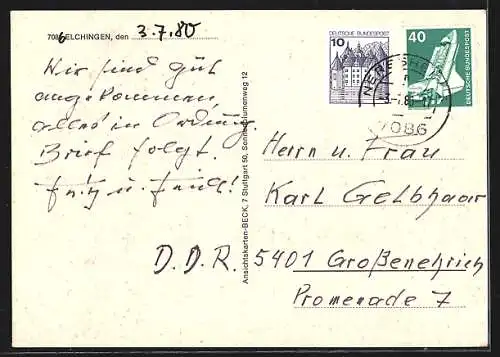 7086 ELCHINGEN, den 3.7.80
Wir sind gut
angekommen,
alles in Ordnung.
Brief folgt.
Fritz u.
Ansichtskarten-BECK, 7 Stuttgart 50, Sonnenblumenweg 12
10 DEUTSCHE BUNDESPOST
40
DEUTSCHE BUNDESPOST
NERESHEIM
7086
Herrn u. Frau
Karl Gelbhaar
D.D.R. 5401 Großenehrich
Promenade 7